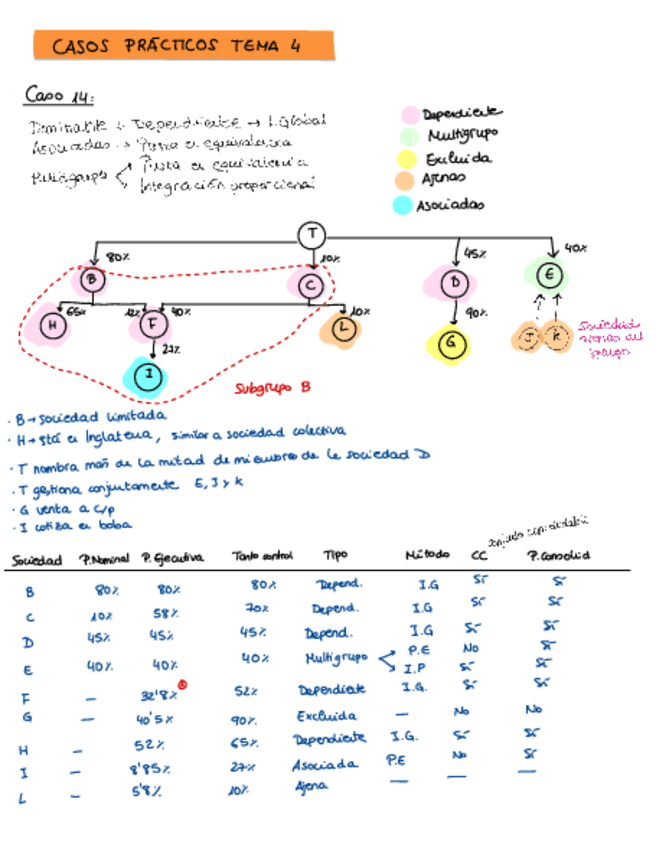 CASOS PRÁCTICOS TEMA 4
Caso 14:
Dominante y Dependiente → I.Global
Asociadas → Puesta en equivalencia
Multigrupo
Puesta en equivalencia
Integración proporcional
Dependiente
Multigrupo
Excluida
Ajenas
Asociadas
T
80% 10% 45% 40%
B C D E
65% 12% 40% 10% 90%
H F L G J K
Sociedad
ajenas del
grupo
27%
I
Subgrupo B
· B → sociedad limitada
· H → está en Inglaterra, similar a sociedad colectiva
· T nombra más de la mitad de miembros de la sociedad D
· T gestiona conjuntamente E, J y K
· G venta a c/p
· I cotiza en bolsa
conjunto consolidable
Sociedad P.Nominal P. Ejecutiva Tanto control Tipo Método CC P.Consolid
B 80% 80% 80% Depend. I.G Sí Sí
C 10% 58% 70% Depend. I.G Sí Sí
D 45% 45% 45% Depend. I.G Sí Sí
E 40% 40% 40% Multigrupo P.E No Sí
I.P Sí Sí
F — 32'8% 52% Dependiente I.G. Sí Sí
G — 40'5% 90% Excluida — No No
H — 52% 65% Dependiente I.G. Sí Sí
I — 8'85% 27% Asociada P.E No Sí
L — 5'8% 10% Ajena — — —